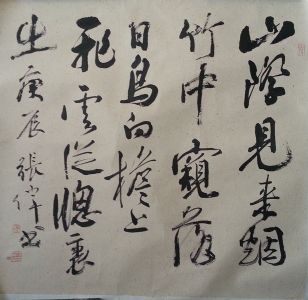 山際見来烟
竹中窺落
日鳥向檐上
飛雲從牕裏
出庚辰張書